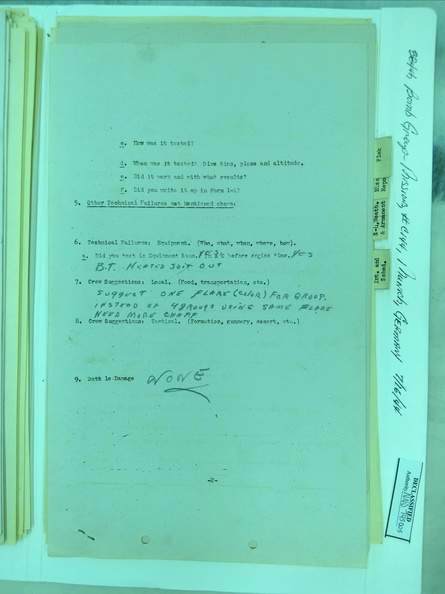 c. How was it tested?
d. When was it tested? Give time, place and altitude.
e. Did it work and with what results?
f. Did you write it up in Form 1-A?
5. Other Technical Failures not Mentioned above:
6. Technical Failures: Equipment. (Who, what, when, where, how).
a. Did you test in Equipment Room before engine time. YES
B.T. HEATED SUIT OUT
7. Crew Suggestions: Local. (Food, transportation, etc.)
SUGGEST ONE FLARE (COLOR) FOR GROUP.
INSTEAD OF 4 GROUPS USING SAME FLARE
NEED MORE CHAFF
8. Crew Suggestions: Tactical. (Formation, gunnery, escort, etc.)
9. Battle Damage NONE
-2-
Flak
Miss Reps
& Armament
Int. and
Sched.
Bomb Group - Missing Munich, Germany
DECLASSIFIED
Authority